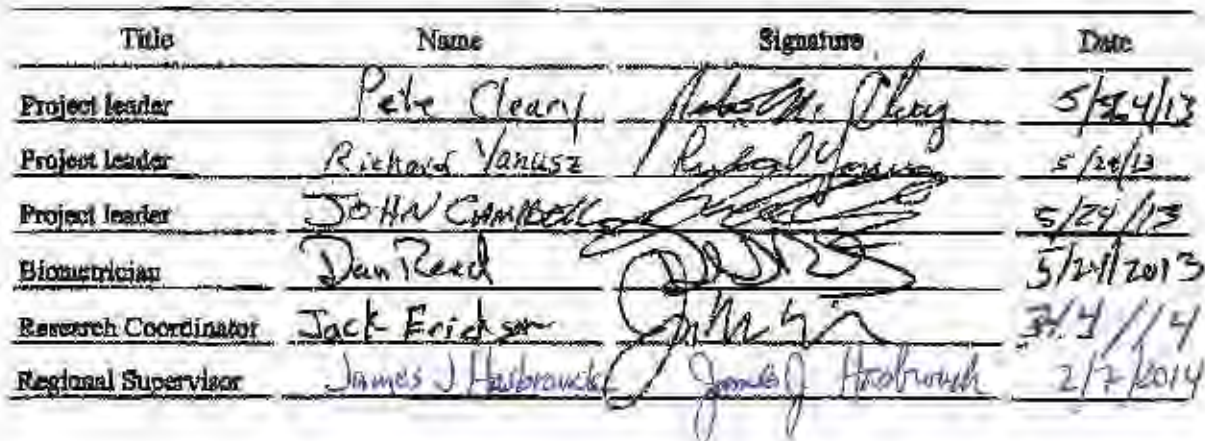 Title Name Signature Date
Project leader Pete Cleary 5/24/13
Project leader Richard Yanusz 5/24/13
Project leader JOHN CAMPBELL 5/24/13
Biometrician Dan Reed 5/24/2013
Research Coordinator Jack Erickson
Regional Supervisor James J Hasbrouck James J Hasbrouck 2/7/2014